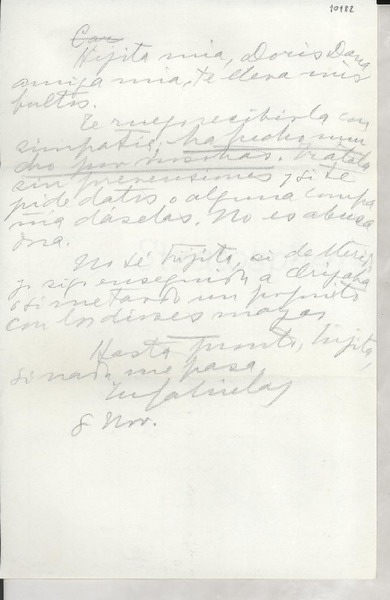 10182
Car
Hijita mía, Doris Dana
amiga mía, te lleva mis
bultos.
Te ruego recibirla con
simpatía, ha hecho mu
cho por nosotras. Trátala
sin prevenciones y si te
pide datos o alguna compa
ñía dáselas. No es abusa
dora.
No sé hijita, si de Méri
sigo enseguida a Orizaba
o si me tardo un poquito
con los dioses mayas
Hasta pronto, hijita,
si nada me pasa
Tu Gabriela
8 Nov.